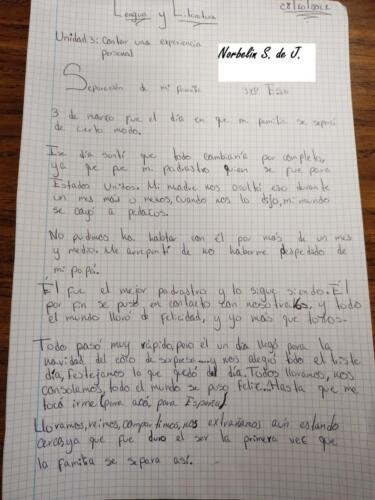 Lengua y Literatura
28/10/2022
Unidad 3: Contar una experiencia
personal
Norbelin S. de J.
Separación de mi familia
ESO
3 de marzo fue el día en que mi familia se separó
de cierto modo.
Ese día sentí que todo cambiaría por completo,
ya que fue mi padrastro quien se fue para
Estados Unitos. Mi madre nos ocultó eso durante
un mes más o menos, cuando nos lo dijo, mi mundo
se cayó a pedazos.
No pudimos ha hablar con él por más de un mes
y medio. Me arrepentí de no haberme despedado de
mi papá.
Él fue el mejor padrastro y lo sigue siendo. Él
por fin se puso en contacto con nosotros, y todo
el mundo lloró de felicidad, y yo más que todos.
Todo pasó muy rápido, pero él un día llegó para la
navidad del año de sorpresa... y nos alegró todo el triste
día, festejamos lo que quedó del día. Todos lloramos, nos
consolamos, todo el mundo se puso feliz... Hasta que me
tocó irme (para acá, para España)
Lloramos, reimos, compartimos, nos extrañamos aún estando
cerca, ya que fue duro el ser la primera vez que
la familia se separa así.